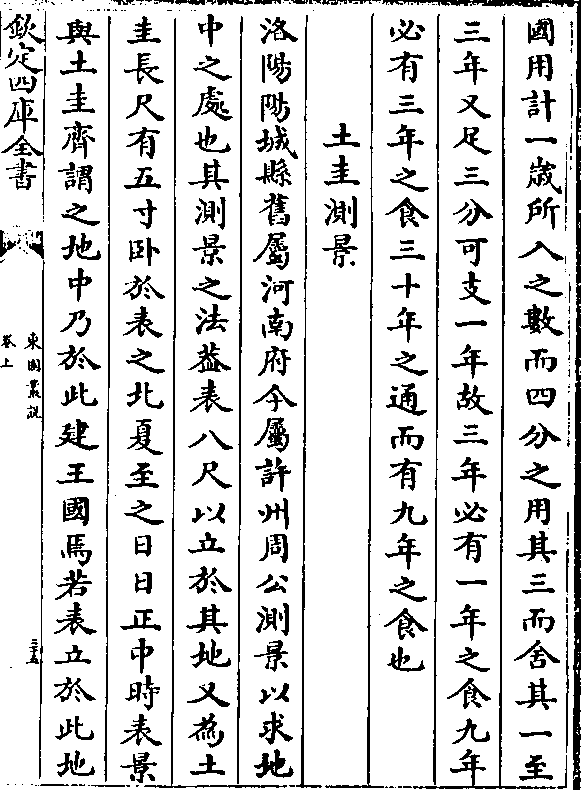 國用計一歲所入之數而四分之用其三而舍其一至
三年又足三分可支一年故三年必有一年之食九年
必有三年之食三十年之通而有九年之食也
土圭測景
洛陽陽城縣舊屬河南府今屬許州周公測景以求地
中之處也其測景之法葢表八尺以立於其地又為土
圭長尺有五寸卧於表之北夏至之日日正中時表景
與土圭齊謂之地中乃於此建王國焉若表立於此地
欽定四庫全書
東園叢説
卷上
三十五